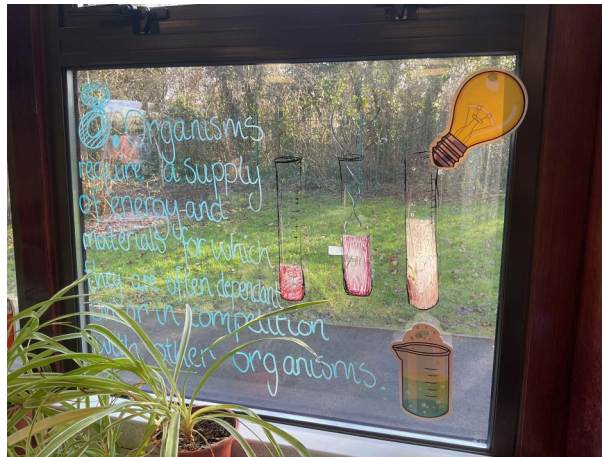 8. Organisms
require a supply
of energy and
materials for which
they are often dependant
on or in competition
with other organisms.